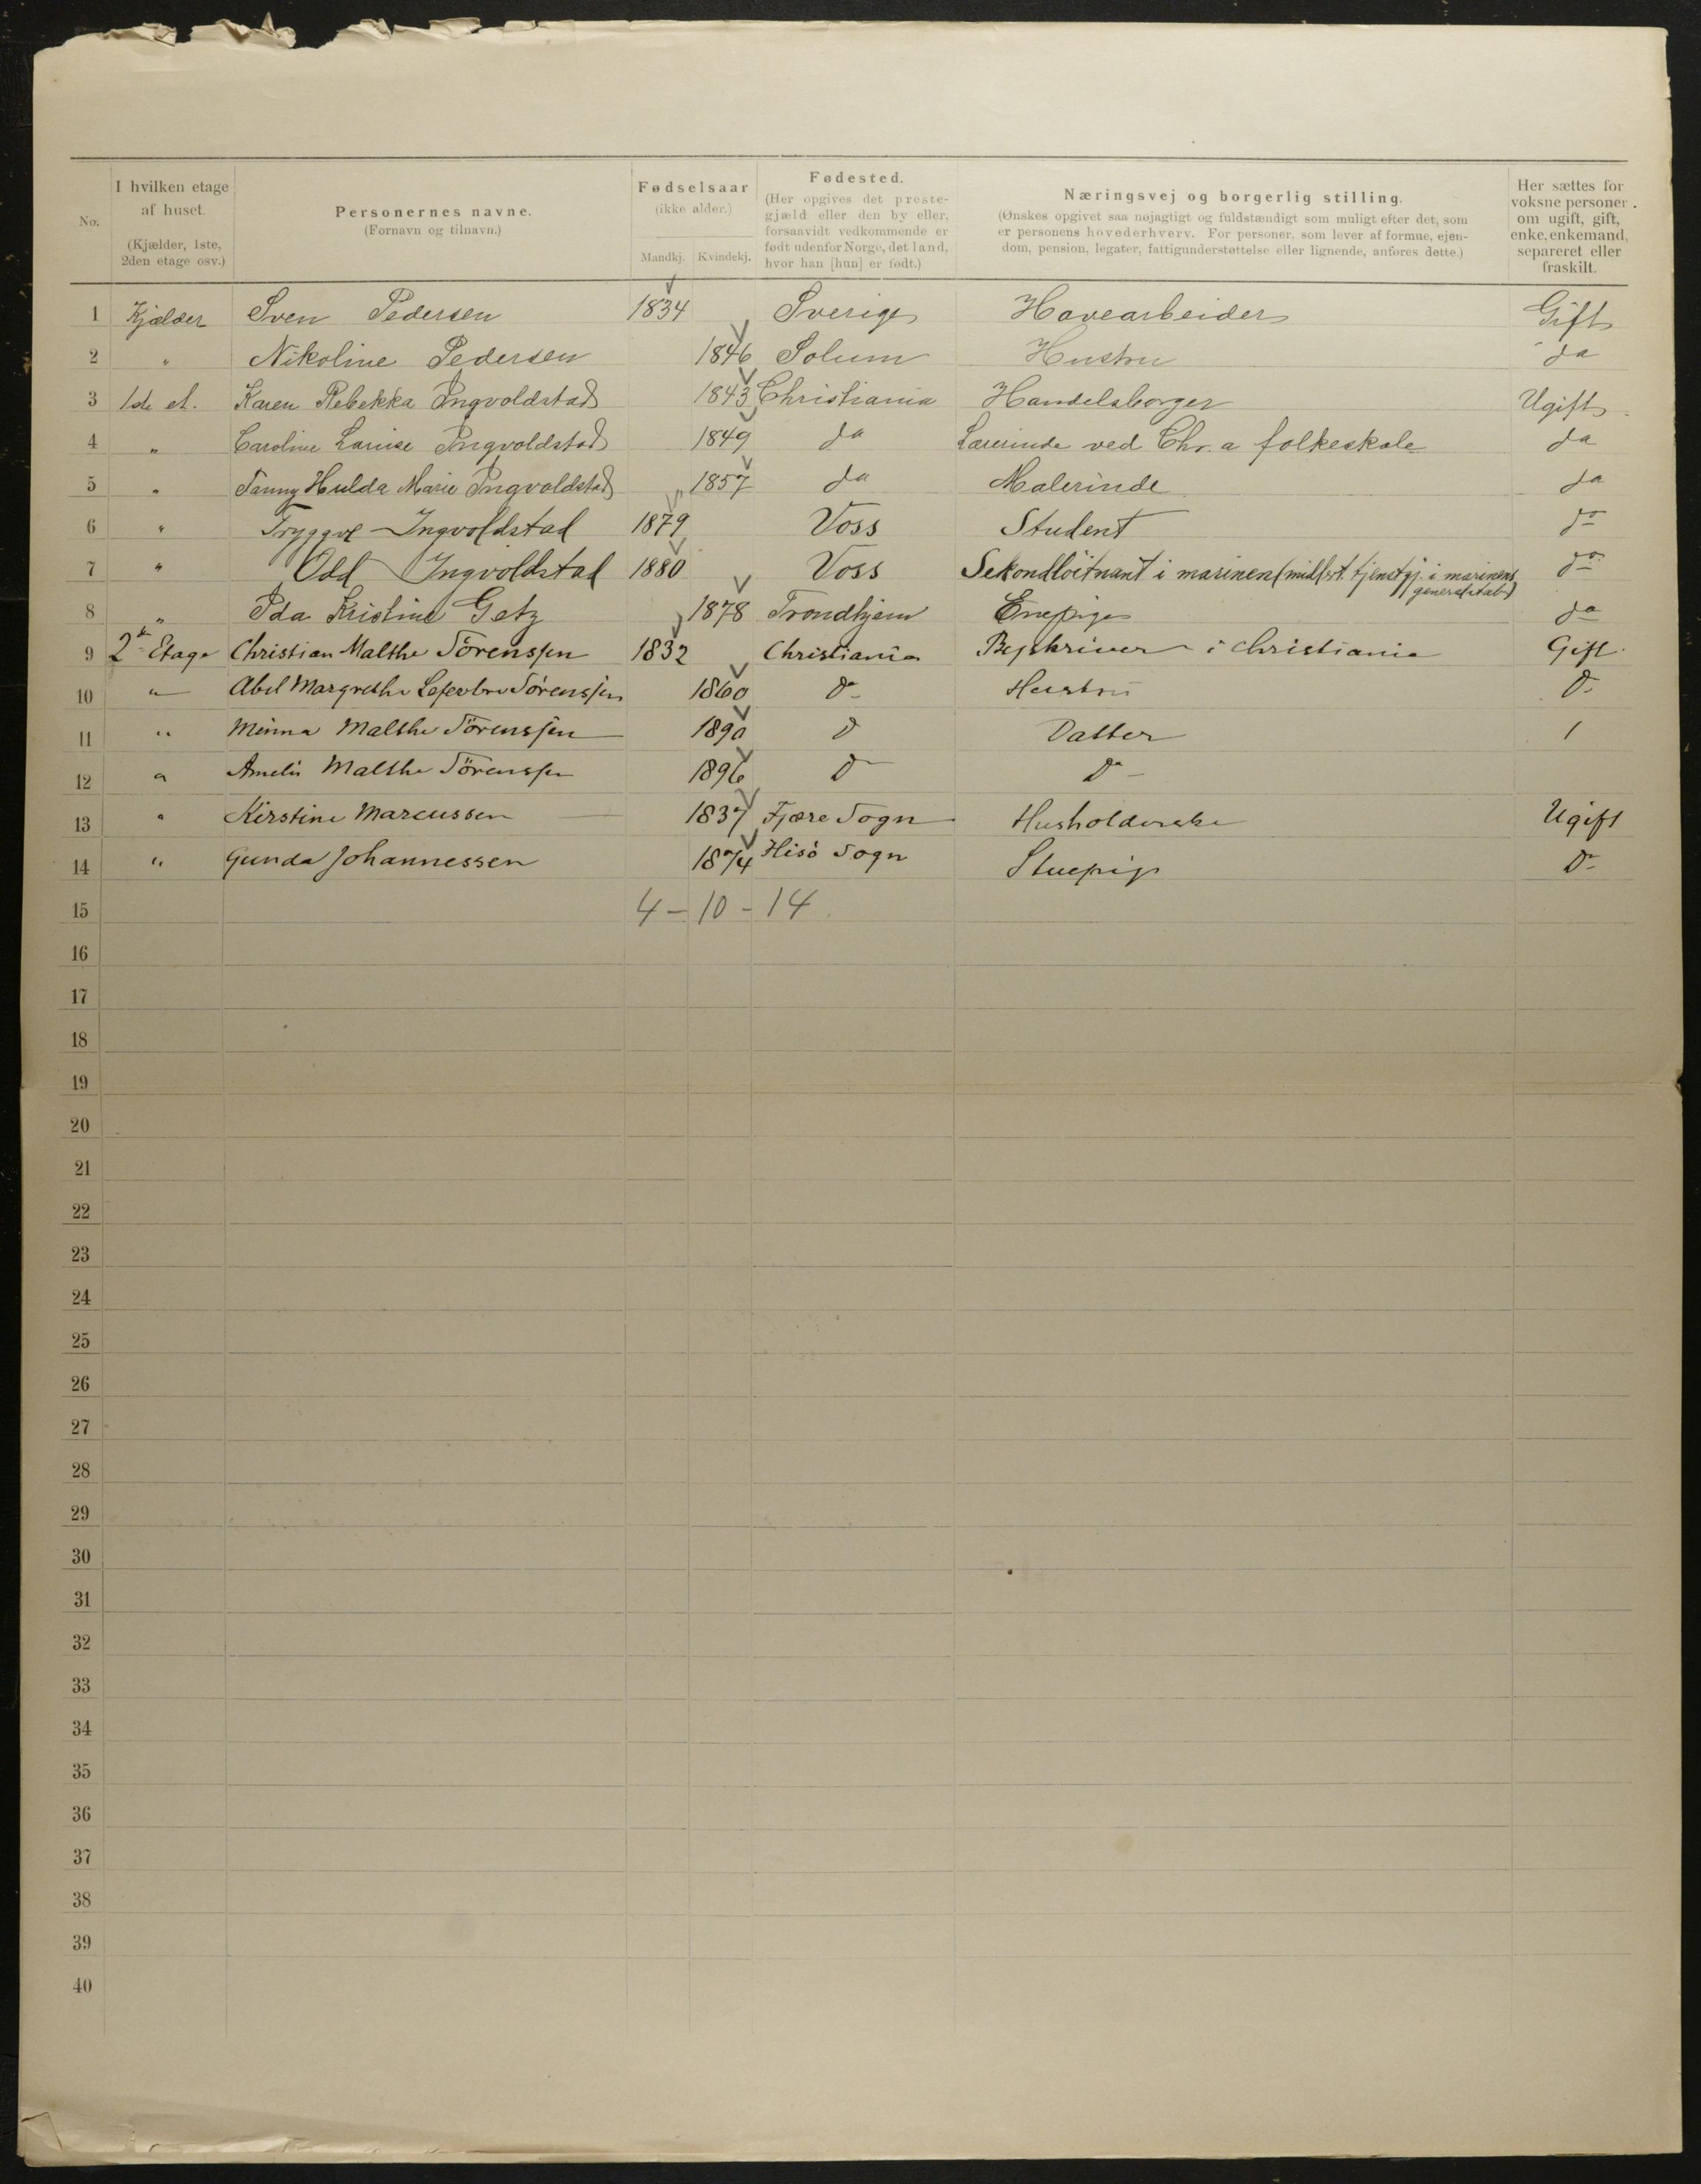 No. I hvilken etage af huset. (Kjælder, 1ste, 2den etage osv.) Personernes navne. (Fornavn og tilnavn.) Fødselsaar (ikke alder.) Mandkj. Kvindekj. Fødested. (Her opgives det præstegjæld eller den by eller, forsaavidt vedkommende er født udenfor Norge, det land, hvor han [hun] er født.) Næringsvej og borgerlig stilling. (Ønskes opgivet saa nøjagtigt og fuldstændigt som muligt efter det, som er personens hovederhverv. For personer, som lever af formue, ejendom, pension, legater, fattigunderstøttelse eller lignende, anføres dette.) Her sættes for voksne personer om ugift, gift, enke, enkemand, separeret eller fraskilt.
1 Kjælder Sven Pedersen 1834 Sverige Havearbeider Gift
2 " Nikoline Pedersen 1846 Solum Hustru da
3 1de et. Karen Rebekka Ingvoldstad 1843 Christiania Handelsborger Ugift
4 " Caroline Louise Ingvoldstad 1849 da Lærerinde ved Chr.a folkeskole da
5 " Fanny Hulda Marie Ingvoldstad 1857 da Malerinde da
6 " Tryggve Ingvoldstad 1879 Voss Student do
7 " Odd Ingvoldstad 1880 Voss Sekondløitnant i marinen (midlert. tjenstgj. i marinens
generalstab)
do
8 " Ida Kristine Getz 1878 Trondhjem Enepige da
9 2den Etage Christian Malthe Sörenssen 1832 Christiania Byskriver i Christiania Gift
10 " Abel Margrethe Lefevbre Sörenssen 1860 Do Hustru Do
11 " Minna Malthe Sörenssen 1890 D Datter /
12 " Amelie Malthe Sörenssen 1896 D Do
13 " Kirstine Marcussen 1837 Fjære Sogn Husholderske Ugift
14 " Gunda Johannessen 1874 Hisö Sogn Stuepige Do
15 4 - 10 - 14
16
17
18
19
20
21
22
23
24
25
26
27
28
29
30
31
32
33
34
35
36
37
38
39
40